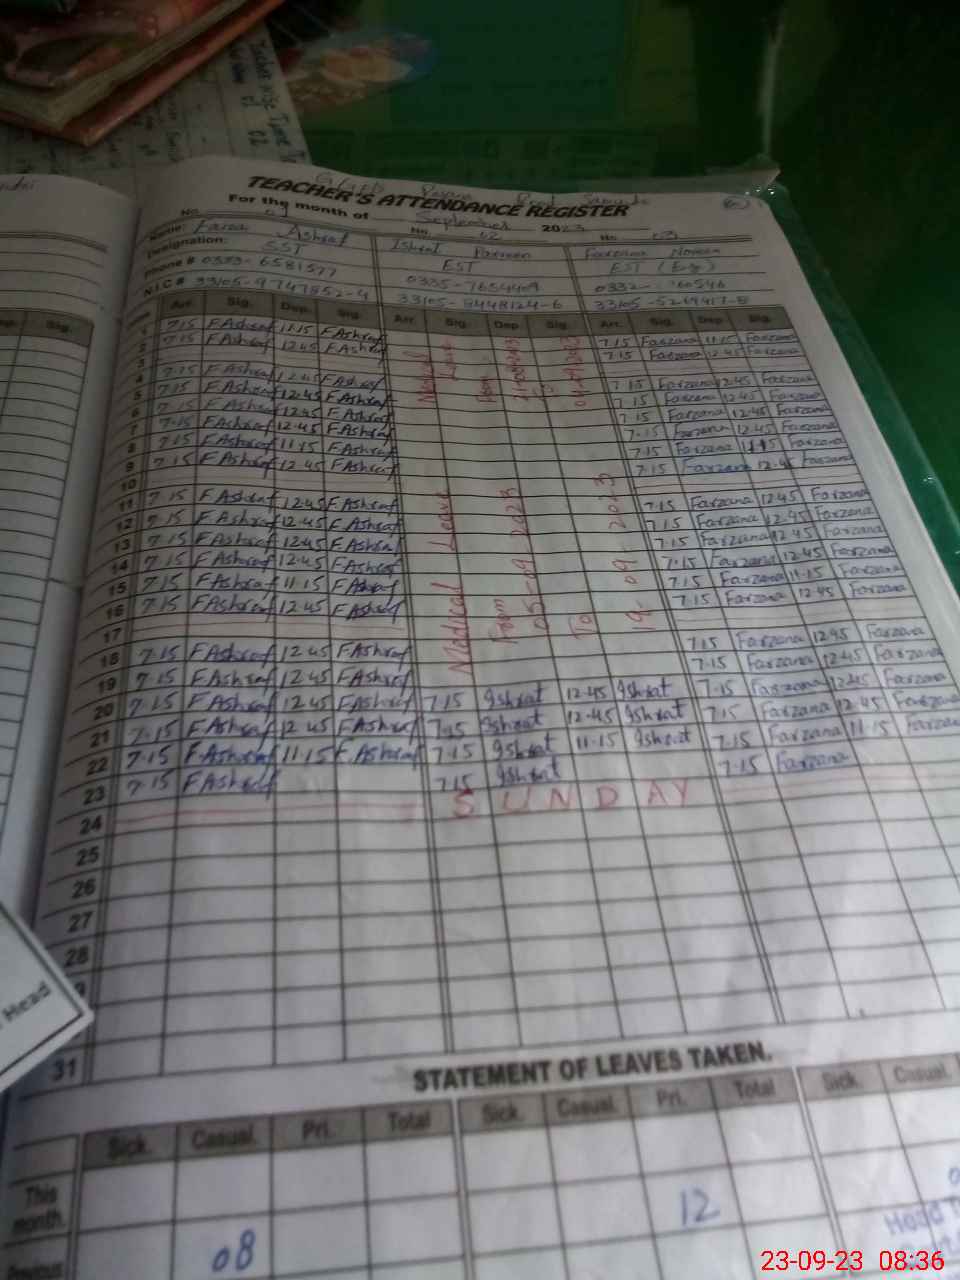 TEACHER'S ATTENDANCE REGISTER
For the month of September 2023
No. 01 No. 02 No. 03
Name: Ashraf Ishrat Farzana
Designation: SST EST EST (Eng)
Phone # 0333-6581577 0335-7654409 0332-
N.I.C # 33105-9747852-4 33105-8448124-6 33105-5269417-8
Arr. Sig. Dep. Sig. Arr. Sig. Dep. Sig. Arr. Sig. Dep. Sig.
1 7.15 F Ashraf 11.15 F Ashraf 7.15 Farzana 11.15 Farzana
2 7.15 F Ashraf 12.45 F Ashraf 7.15 Farzana 12.45 Farzana
3
4 7.15 F Ashraf 12.45 F Ashraf 7.15 Farzana 12.45 Farzana
5 7.15 F Ashraf 12.45 F Ashraf 7.15 Farzana 12.45 Farzana
6 7.15 F Ashraf 12.45 F Ashraf 7.15 Farzana 12.45 Farzana
7 7.15 F Ashraf 12.45 F Ashraf 7.15 Farzana 12.45 Farzana
8 7.15 F Ashraf 11.15 F Ashraf 7.15 Farzana 11.15 Farzana
9 7.15 F Ashraf 12.45 F Ashraf 7.15 Farzana 12.45 Farzana
10
11 7.15 F Ashraf 12.45 F Ashraf 7.15 Farzana 12.45 Farzana
12 7.15 F Ashraf 12.45 F Ashraf 7.15 Farzana 12.45 Farzana
13 7.15 F Ashraf 12.45 F Ashraf 7.15 Farzana 12.45 Farzana
14 7.15 F Ashraf 12.45 F Ashraf 7.15 Farzana 12.45 Farzana
15 7.15 F Ashraf 11.15 F Ashraf 7.15 Farzana 11.15 Farzana
16 7.15 F Ashraf 12.45 F Ashraf 7.15 Farzana 12.45 Farzana
17
18 7.15 F Ashraf 12.45 F Ashraf 7.15 Farzana 12.45 Farzana
19 7.15 F Ashraf 12.45 F Ashraf 7.15 Farzana 12.45 Farzana
20 7.15 F Ashraf 12.45 F Ashraf 7.15 Ishrat 12.45 Ishrat 7.15 Farzana 12.45 Farzana
21 7.15 F Ashraf 12.45 F Ashraf 7.15 Ishrat 12.45 Ishrat 7.15 Farzana 12.45 Farzana
22 7.15 F Ashraf 11.15 F Ashraf 7.15 Ishrat 11.15 Ishrat 7.15 Farzana 11.15 Farzana
23 7.15 F Ashraf 7.15 Ishrat 7.15 Farzana
24 SUNDAY
25
26
27
28
31
Medical Leave
From
To
Medical Leave
From 05-09-2023
To 19-09-2023
STATEMENT OF LEAVES TAKEN.
Sick. Casual. Pri. Total Sick. Casual. Pri. Total Sick. Casual.
This month. 12
Previous 08
Head
Sig.
23-09-23 08:36